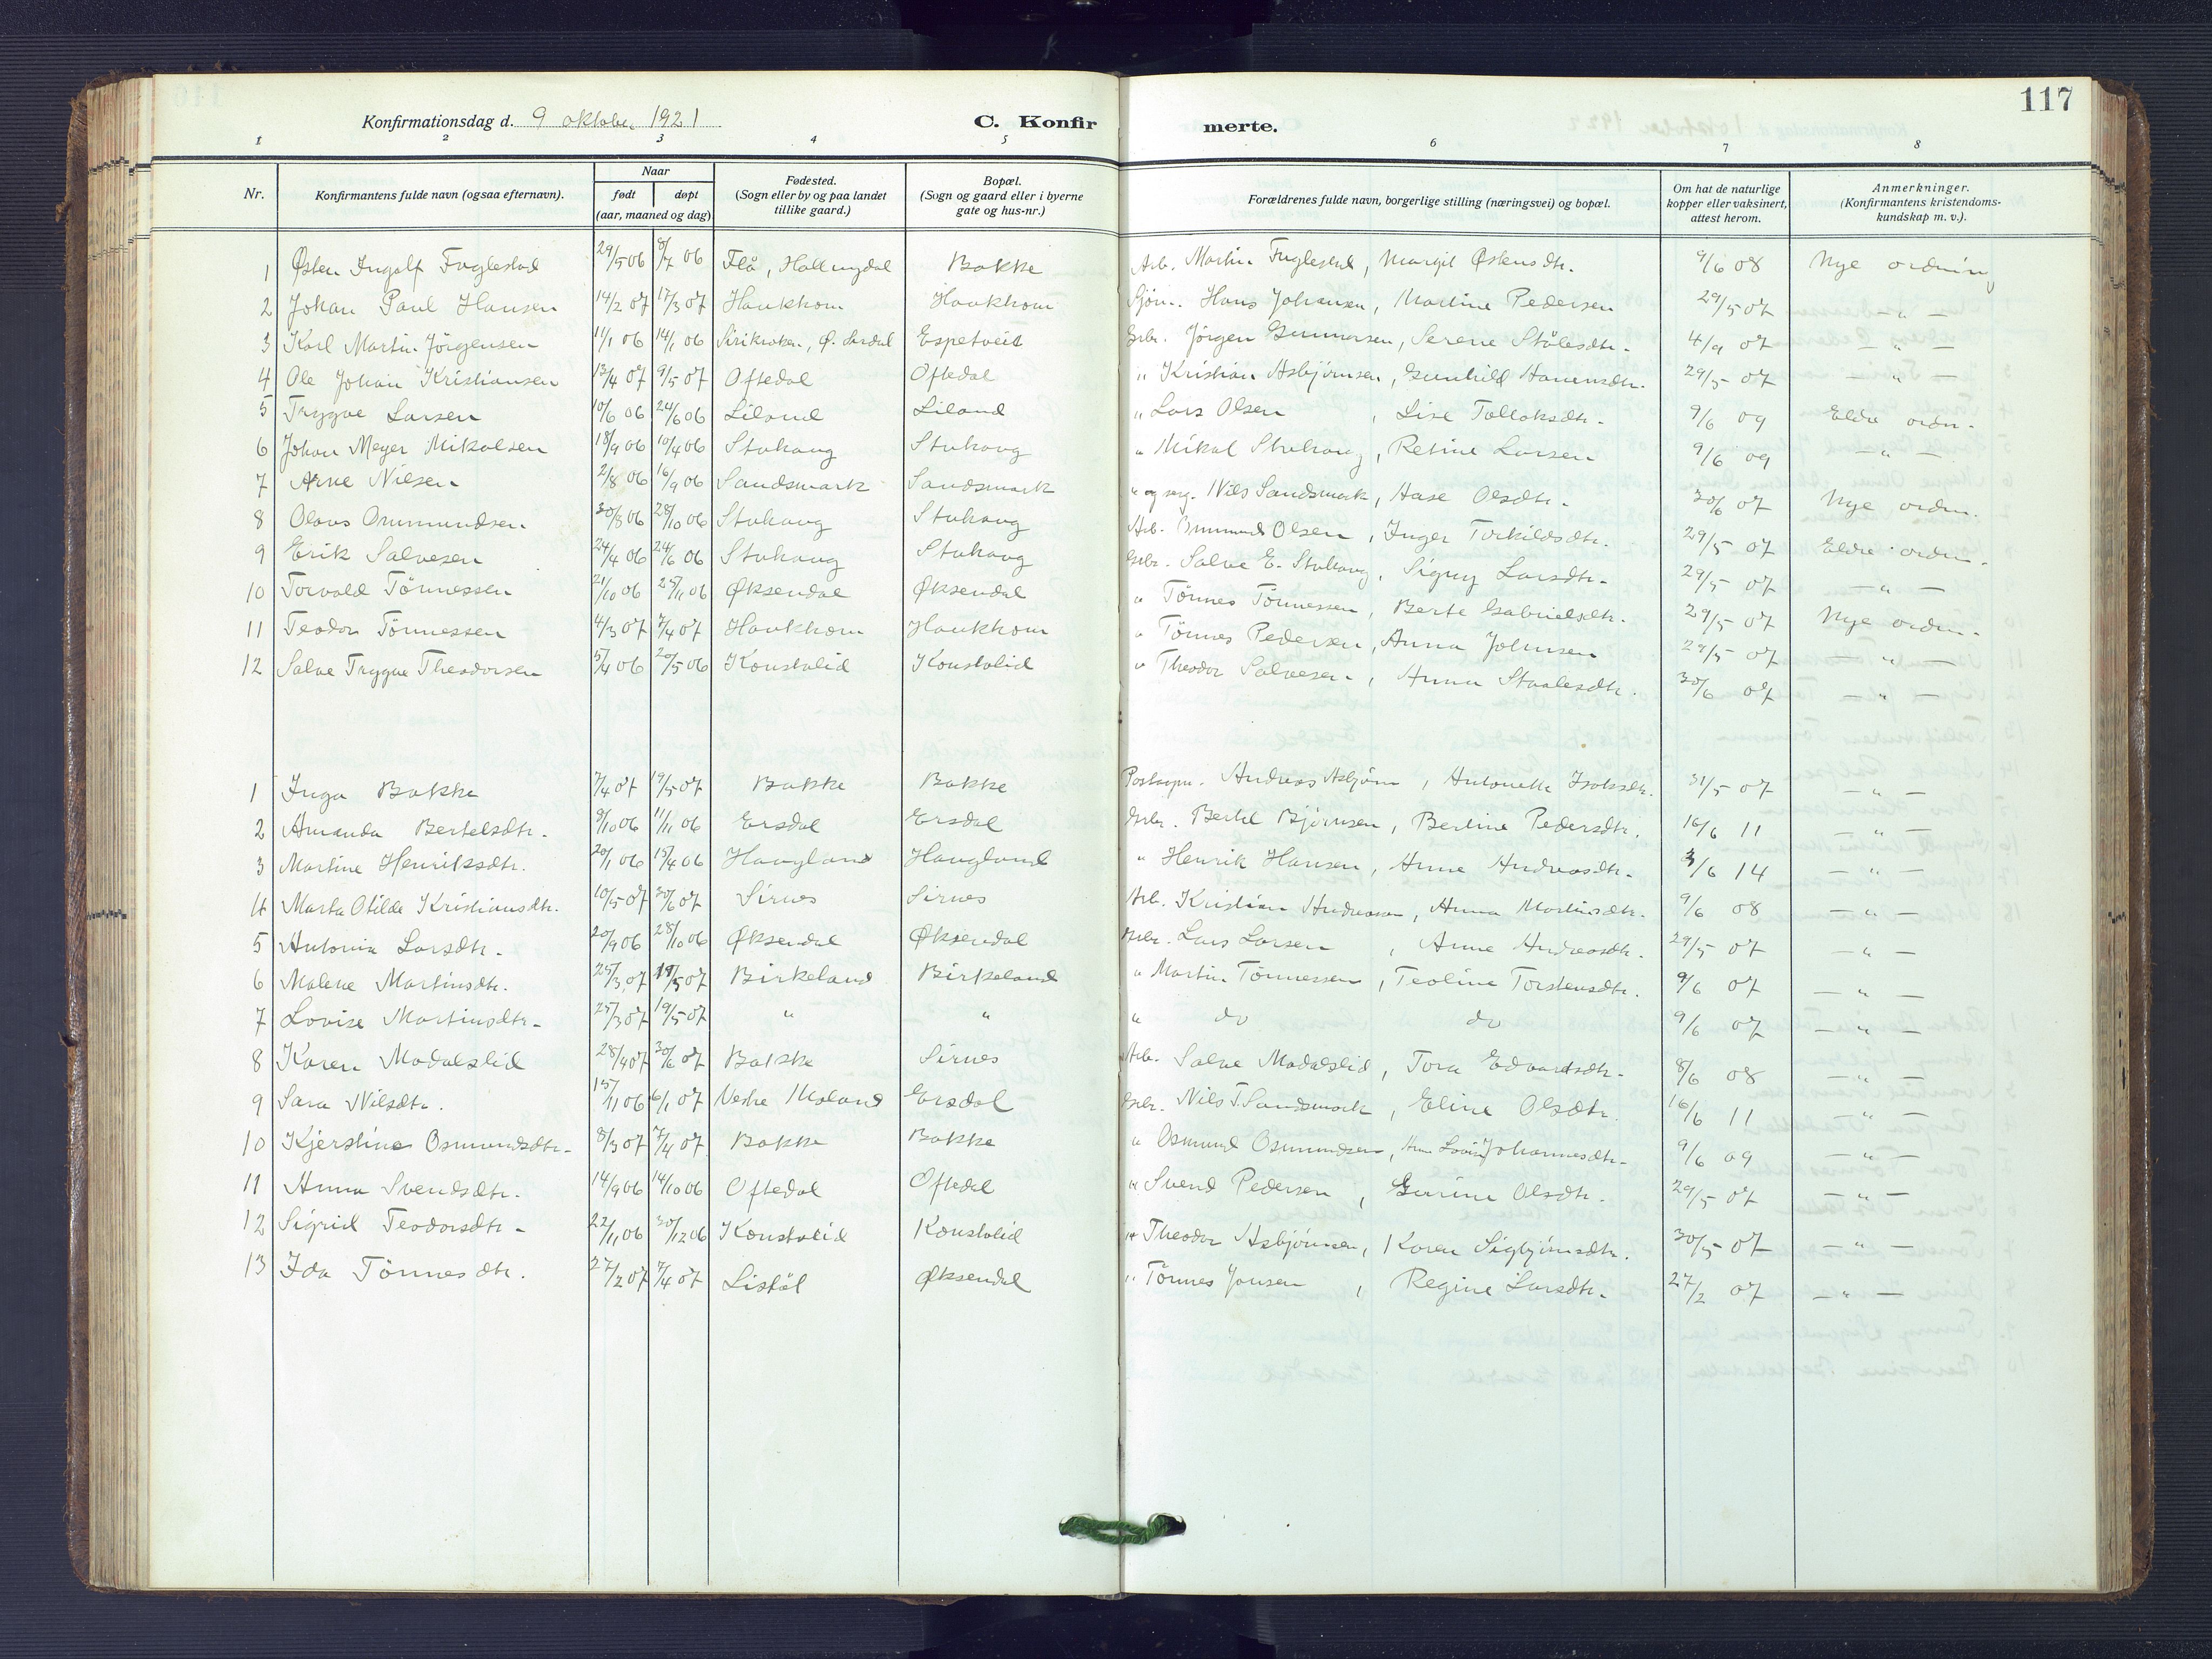 117
Konfirmationsdag d. 9 oktober 1921
C. Konfirmerte.
1 2 3 4 5 6 7 8
Nr. | Konfirmantens fulde navn (ogsaa efternavn). | Naar født døpt (aar, maaned og dag) | Fødested. (Sogn eller by og paa landet tillike gaard.) | Bopæl. (Sogn og gaard eller i byerne gate og hus-nr.) | Forældrenes fulde navn, borgerlige stilling (næringsvei) og bopæl. | Om hat de naturlige kopper eller vaksinert, attest herom. | Anmerkninger. (Konfirmantens kristendomskundskap m. v.).
1 Østen Ingolf Fuglestad 29/5 06 8/7 06 Flå, Hallingdal Bakke Arb. Martin Fuglestad, Margit Østensdtr. 9/6 08 Nye ordning
2 Johan Paul Hansen 14/2 07 17/3 07 Haukhom Haukhom Sjøm. Hans Johansen, Martine Pedersen 29/5 07 — " —
3 Karl Martin Jörgensen 11/1 06 14/1 06 Ø. Espetveit Grbr. Jörgen Gunnarsen, Serene Stålesdtr. 4/9 07 — " —
4 Ole Johan Kristiansen 13/4 07 9/5 07 Oftedal Oftedal " Kristian Asbjörnsen, Gunhild Hanensdtr. 29/5 07 — " —
5 Trygve Larsen 10/6 06 24/6 06 Liland Liland " Lars Olsen, Lise Tollaksdtr. 9/6 09 Eldre ordn.
6 Johan Meyer Mikalsen 18/9 06 10/4 06 Stuhaug Stuhaug " Mikal Stuhaug, Retine Larsen 9/6 09 — " —
7 Arne Nilsen 2/8 06 16/9 06 Sandsmark Sandsmark " og Nils Sandsmark, Aase Olsdtr. 30/6 07 Nye ordn.
8 Olaus Ommundsen 30/8 06 28/10 06 Stuhaug Stuhaug Arb. Ommund Olsen, Inger Torkildsdtr. 29/5 07 Eldre ordn.
9 Erik Salvesen 24/4 06 24/6 06 Stuhaug Stuhaug Grbr. Salve E. Stuhaug, Signy Larsdtr. 29/5 07 — " —
10 Torvald Tönnessen 21/10 06 25/11 06 Øksendal Øksendal " Tönnes Tönnessen, Berte Gabrielsdtr. 29/5 07 Nye ordn.
11 Teodor Tönnessen 4/3 07 7/4 07 Haukhom Haukhom " Tönnes Pedersen, Anna Johnsen 29/5 07 — " —
12 Salve Trygve Theodorsen 5/4 06 20/5 06 Konstalid Konstalid " Theodor Salvesen, Anna Staalesdtr. 30/6 07 — " —
1 Inga Bakke 7/4 07 19/5 07 Bakke Bakke Andreas Asbjörn, Antonette Isaksdtr. 31/5 07 — " —
2 Amanda Bertelsdtr. 9/10 06 11/11 06 Ersdal Ersdal Grbr. Bertel Bjørnsen, Bertine Pedersdtr. 16/6 11 — " —
3 Martine Henriksdtr. 20/1 06 15/4 06 Haugland Haugland " Henrik Hansen, Anne Andreasdtr. 3/6 14 — " —
4 Marta Otilde Kristiansdtr. 10/5 07 30/6 07 Sirnes Sirnes Arb. Kristian Andreasen, Anna Martinsdtr. 9/6 08 — " —
5 Antonia Larsdtr. 20/9 06 28/10 06 Øksendal Øksendal Grbr. Lars Larsen, Anne Andreasdtr. 29/5 07 — " —
6 Malene Martinsdtr. 25/3 07 19/5 07 Birkeland Birkeland " Martin Tönnessen, Teoline Torstensdtr. 9/6 07 — " —
7 Lovise Martinsdtr. 25/3 07 19/5 07 " " " do do 9/6 07 — " —
8 Karen Modalslid 28/4 07 30/6 07 Bakke Sirnes Arb. Salve Modalslid, Tora Edvardsdtr. 8/6 08 — " —
9 Sara Nilsdtr. 15/11 06 6/1 07 Vestre Moland Ersdal Grbr. Nils T. Sandsmark, Eline Olsdtr. 16/6 11 — " —
10 Kjerstine Osmundsdtr. 8/3 07 7/4 07 Bakke Bakke " Osmund Osmundsen, Anne Lovise Johannesdtr. 9/6 09 — " —
11 Anna Svendsdtr. 14/9 06 14/10 06 Oftedal Oftedal " Svend Pedersen, Gurine Olsdtr. 29/5 07 — " —
12 Sigrid Teodorsdtr. 22/11 06 30/12 06 Konstalid Konstalid " Theodor Asbjörnsen, Karen Sigbjörnsdtr. 30/5 07 — " —
13 Ida Tönnesdtr. 27/2 07 7/4 07 Listöl Øksendal " Tönnes Jonsen, Regine Larsdtr. 27/2 07 — " —